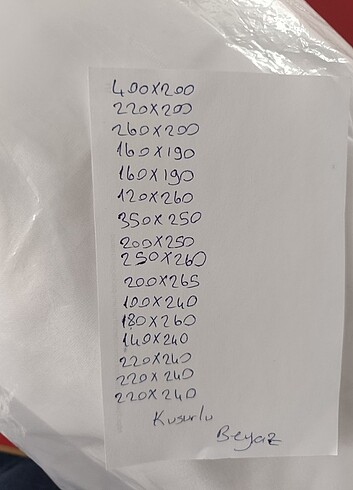 400X200
220X200
260X200
160X190
160X190
120X260
350X250
200X250
250X260
200X265
100X240
180X260
140X240
220X240
220X240
220X240
Kusurlu
Beyaz